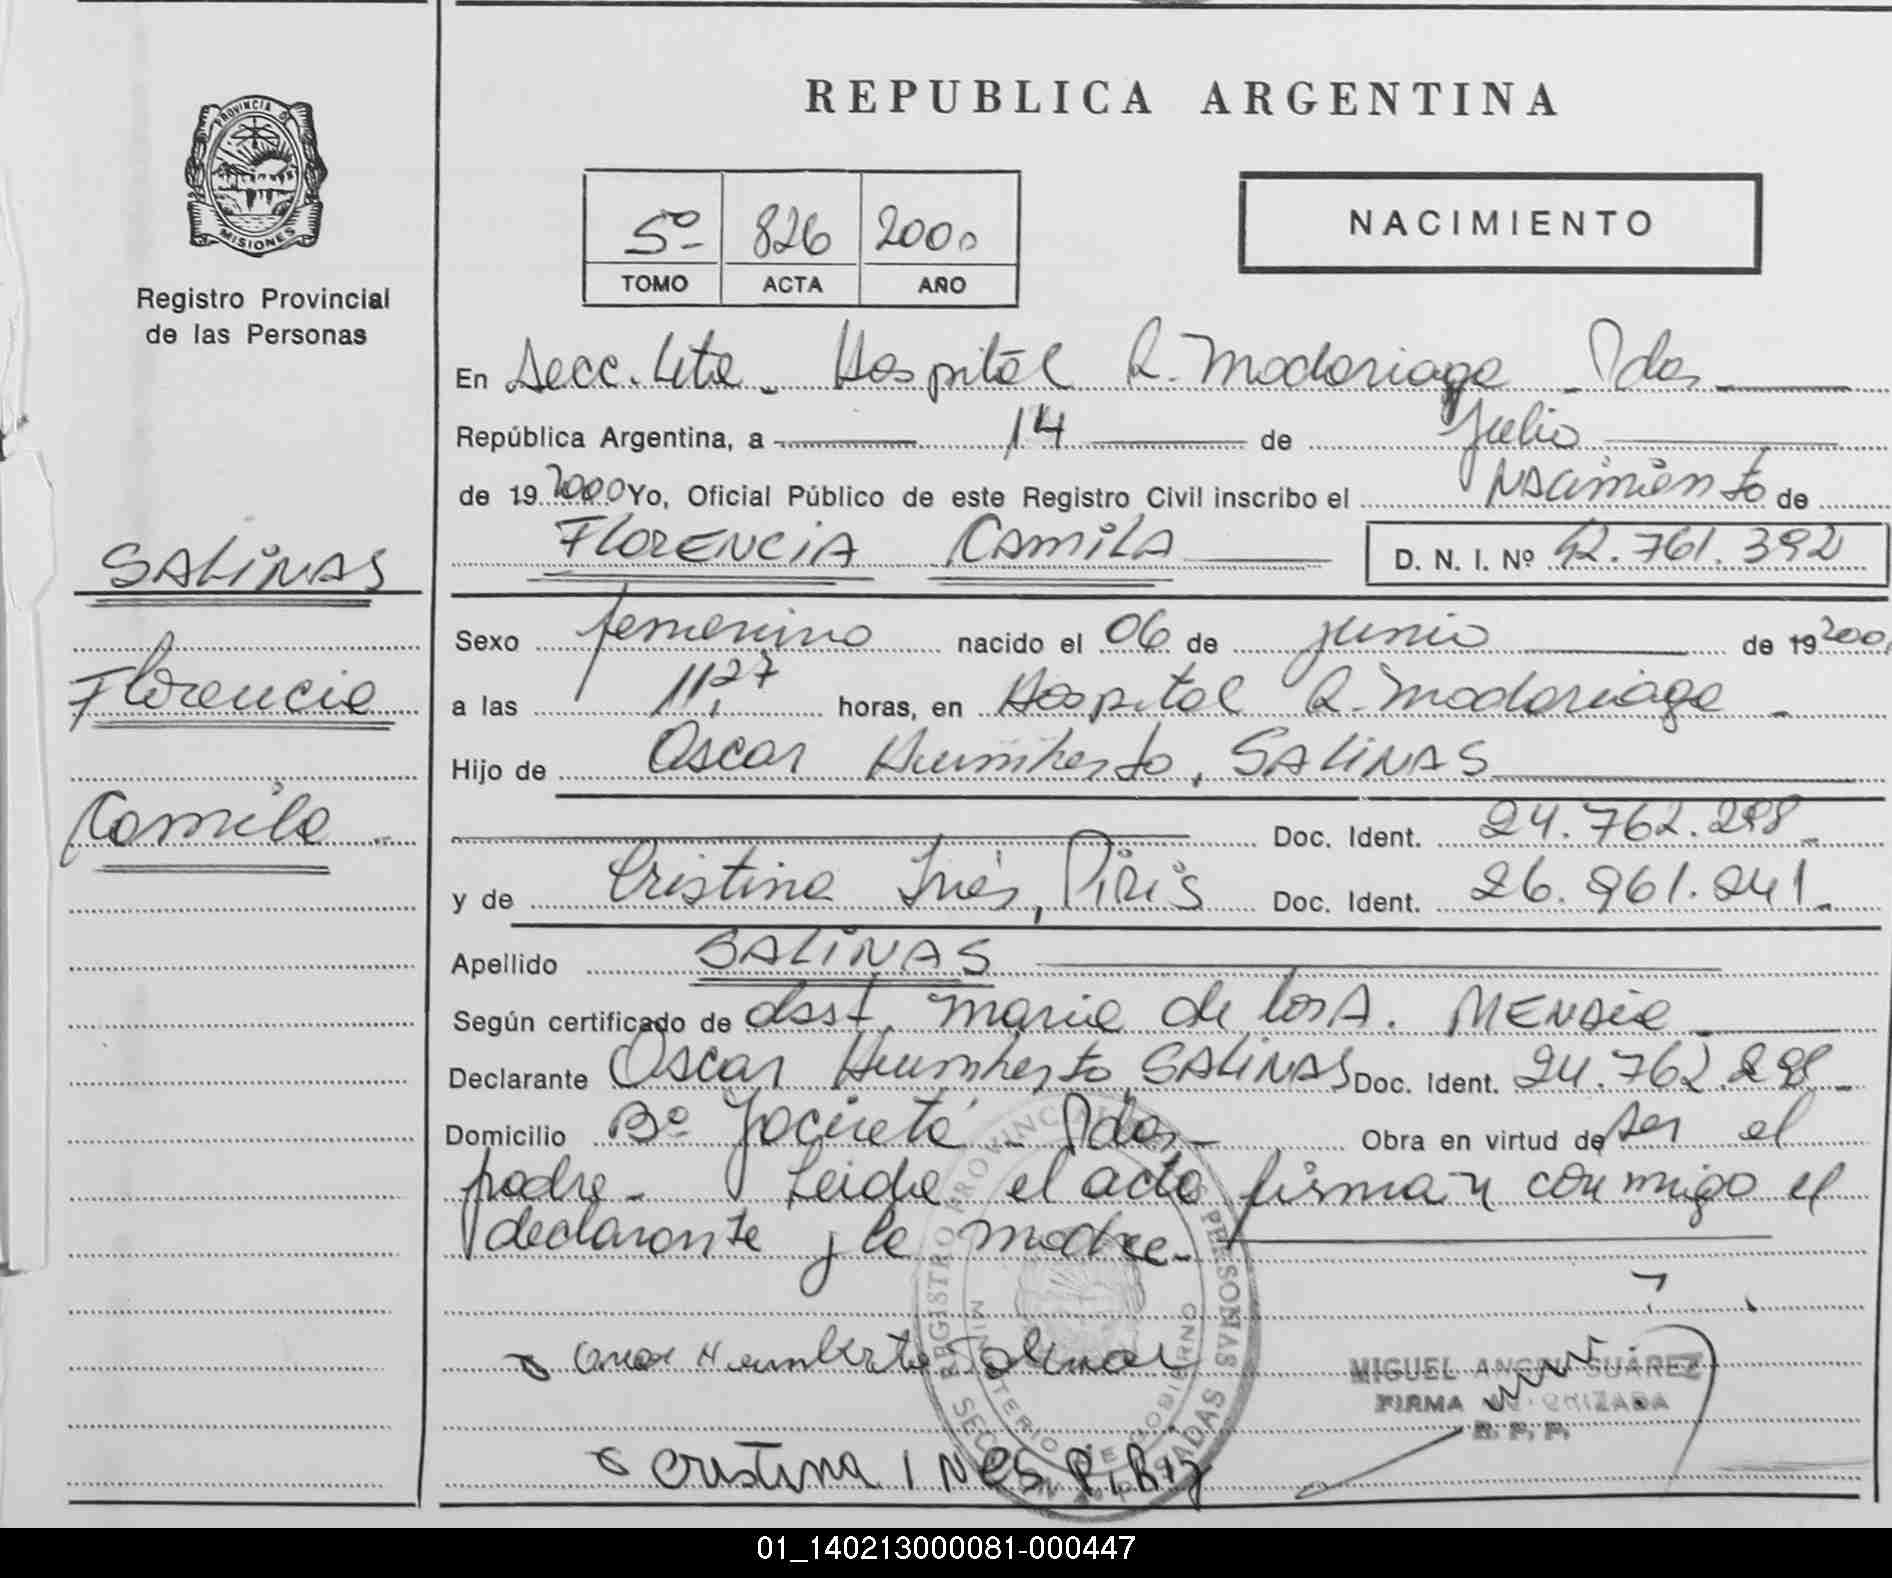 PROVINCIA DE
MISIONES
Registro Provincial
de las Personas
SALINAS
Florencia
Camila
REPUBLICA ARGENTINA
5º 826 2000
TOMO ACTA AÑO
NACIMIENTO
En Secc. 4ta. Hospital R. Madariaga - Pdas
República Argentina, a 14 de Julio
de 19 2000 Yo, Oficial Público de este Registro Civil inscribo el Nacimiento de
FLORENCIA CAMILA D. N. I. Nº 42.761.392
Sexo femenino nacido el 06 de junio de 19 2000
a las 11,27 horas, en Hospital R. Madariaga -
Hijo de Oscar Humberto, SALINAS
Doc. Ident. 24.762.298
y de Cristina Inés, Piris Doc. Ident. 26.961.241
Apellido SALINAS
Según certificado de obst. Maria de los A.
Declarante Oscar Humberto SALINAS Doc. Ident. 24.762.298
Domicilio Bº Yacireta - Pdas - Obra en virtud de ser el
padre - Leida el acta firman conmigo el
declarante y la madre -
Humberto Salinas
MIGUEL ANGEL SUAREZ
FIRMA AUTORIZADA
R. P. P.
Cristina INES
REGISTRO PROVINCIAL DE LAS PERSONAS
MINISTERIO DE GOBIERNO
POSADAS
01_140213000081-000447